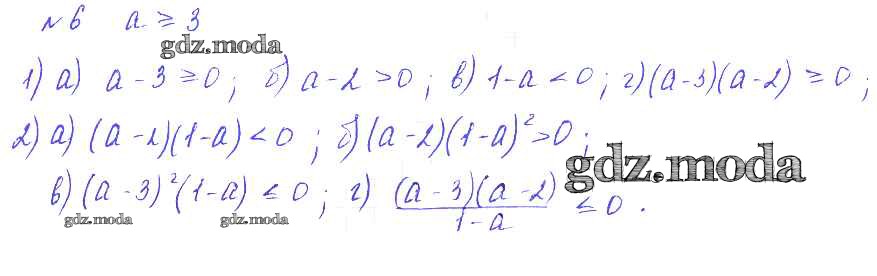 №6 a ≥ 3
gdz.moda
1) а) a - 3 ≥ 0 ; б) a - 2 > 0 ; в) 1 - a < 0 ; г) (a - 3)(a - 2) ≥ 0 ;
2) а) (a - 2)(1 - a) < 0 ; б) (a - 2)(1 - a)² > 0 ;
gdz.moda
в) (a - 3)²(1 - a) ≤ 0 ; г) (a - 3)(a - 2) / 1 - a ≤ 0 .
gdz.moda gdz.moda